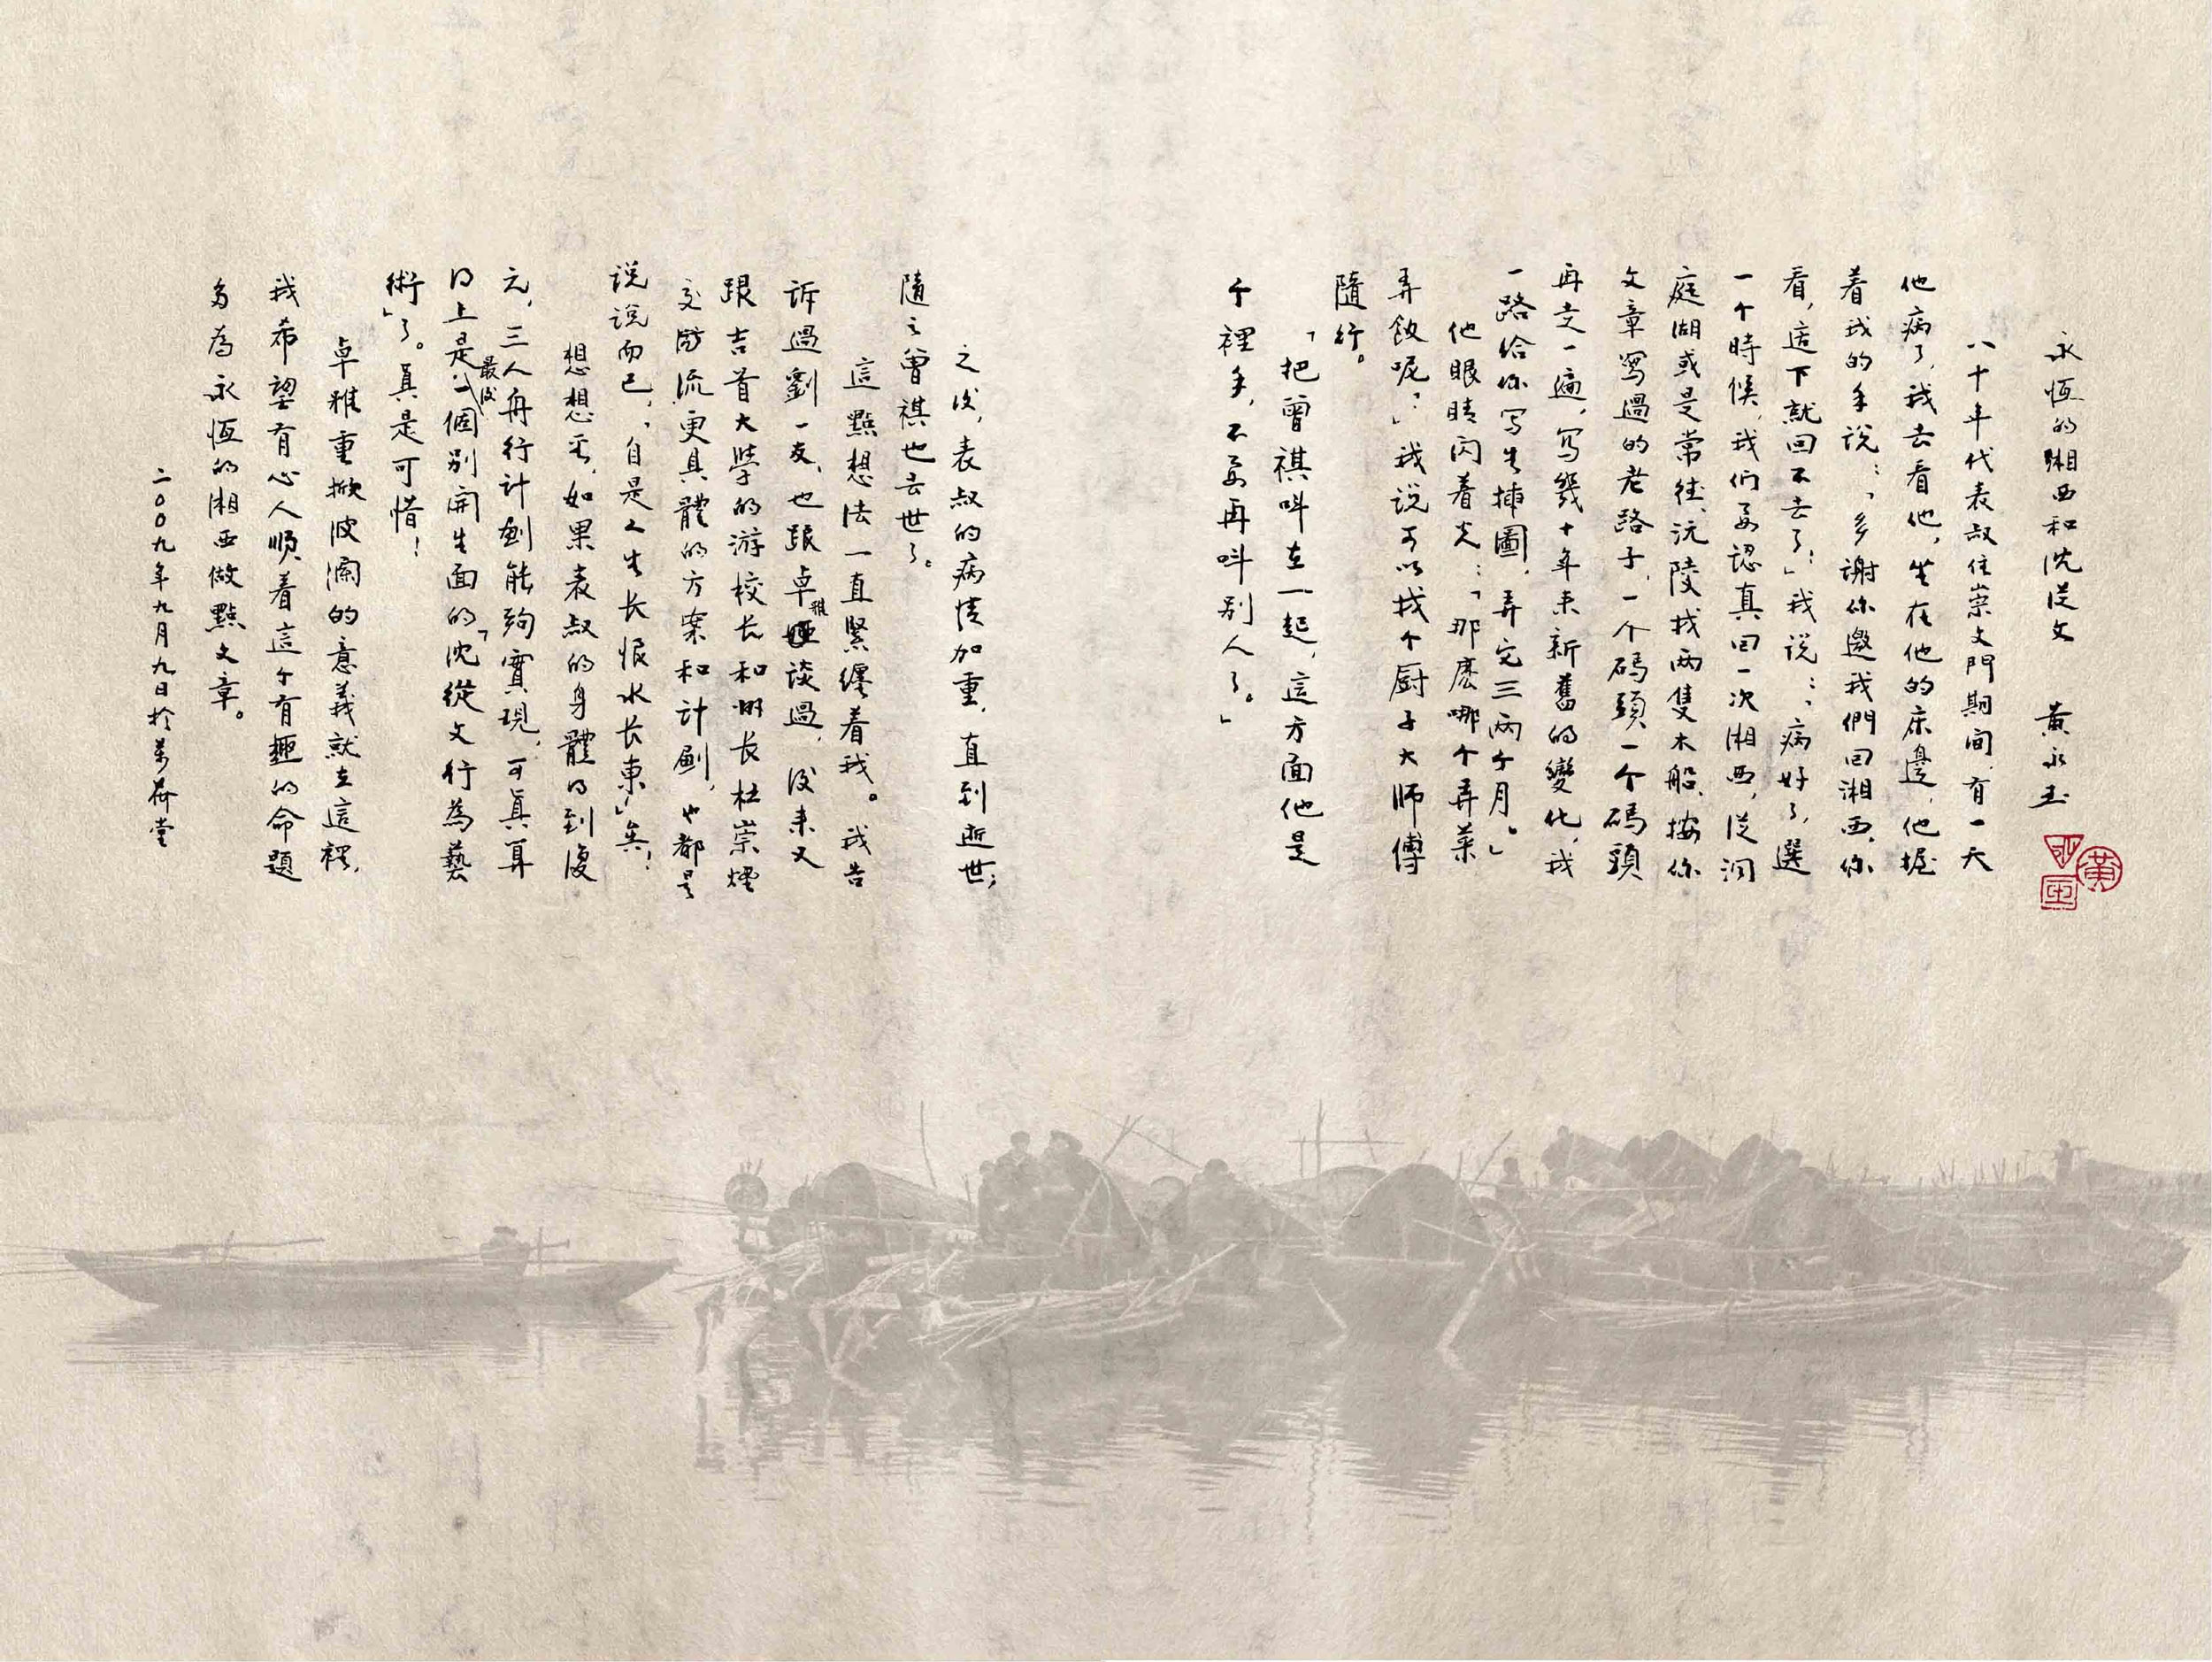 永恆的湘西和沈從文　黃永玉
八十年代表叔住崇文門期間，有一天
他病了，我去看他，坐在他的床邊，他握
着我的手說：「多謝你邀我們回湘西，你
看，這下就回不去了！」我说：「病好了，選
一个時候，我们要認真回一次湘西，從洞
庭湖或是常德、沅陵找两隻木船，按你
文章寫過的老路子，一个碼頭一个碼頭
再走一遍，写幾十年来新舊的變化，我
一路给你写生插圖，弄完三两个月。」
他眼睛闪着光：「那麽哪个弄菜
弄飯呢？」我说可以找个厨子大师傅
隨行。
「把曾祺叫在一起，這方面他是
个裡手，不要再叫别人了。」
之後，表叔的病情加重，直到逝世；
隨之曾祺也去世了。
這點想法一直緊纏着我。我告
诉過劉一友，也跟卓雅談過，後来又
跟吉首大學的游校长和州长杜崇煙
交流，更具體的方案和计劃，也都是
说说而已，「自是人生长恨水长東」矣！
想想看，如果表叔的身體得到復
元，三人舟行计劃能夠實現，可真算
得上是最後一個别開生面的「沈從文行為藝
術」了。真是可惜！
卓雅重掀波瀾的意義就在這裡，
我希望有心人順着這个有趣的命題
多為永恆的湘西做點文章。
二00九年九月九日於萬荷堂
黃永玉